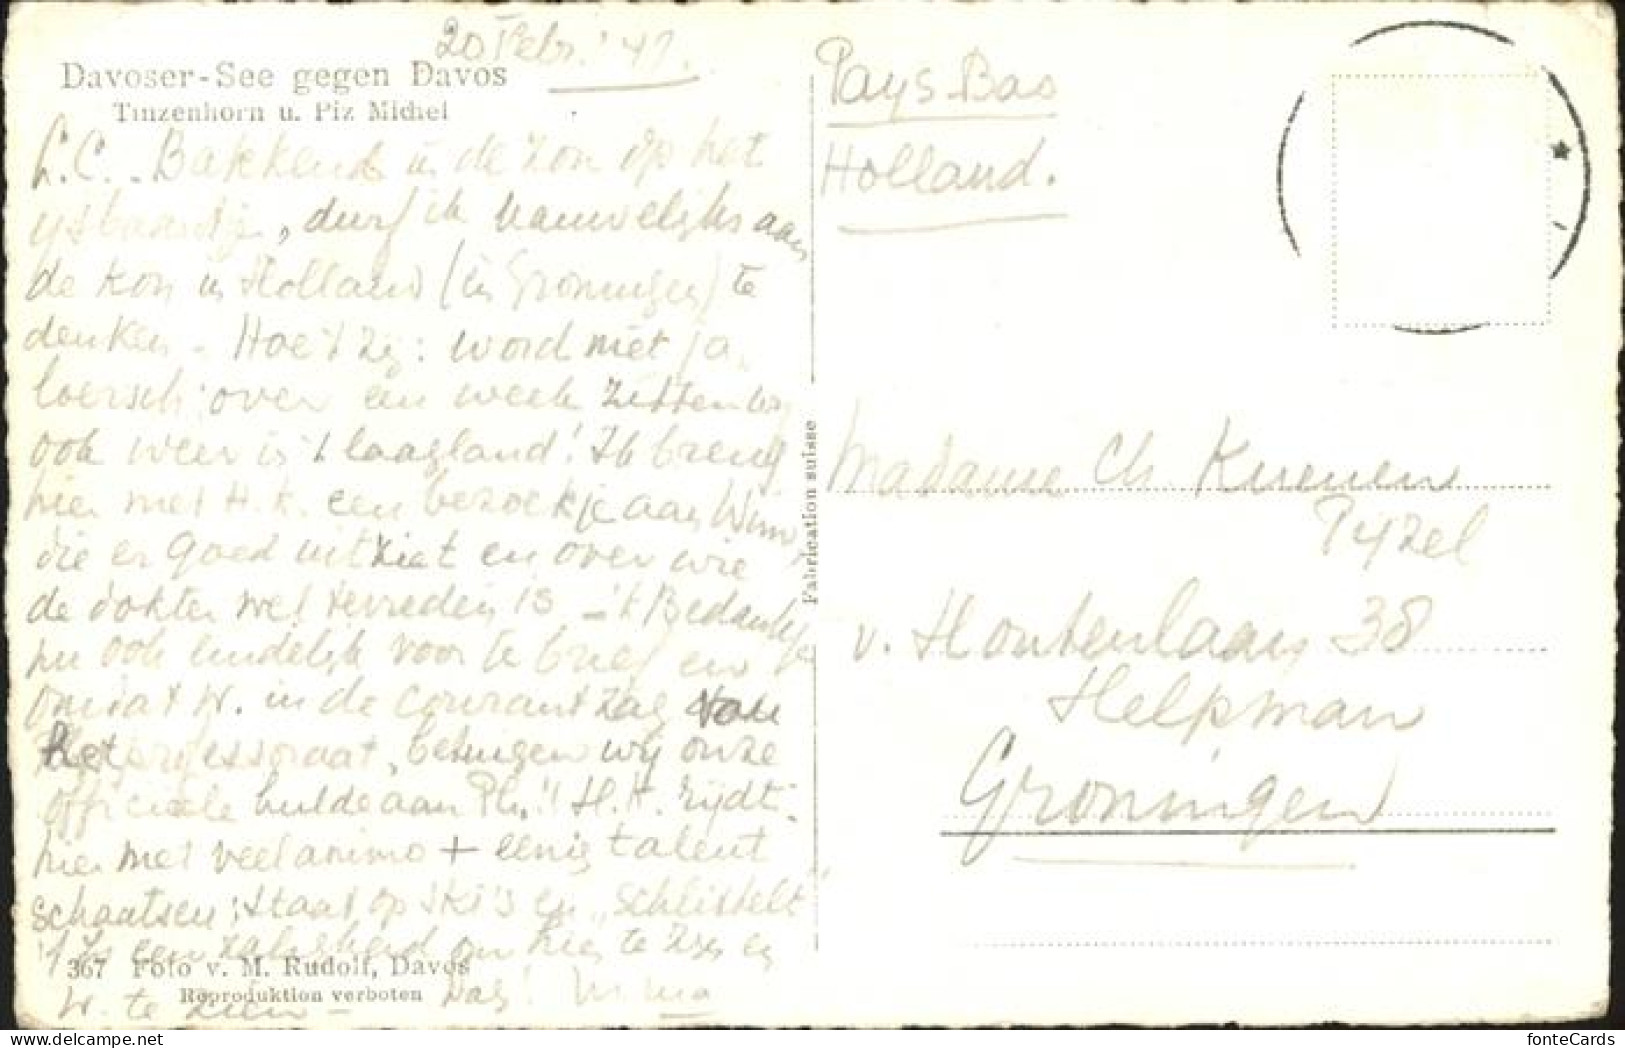 20 Febr. '47.
Davoser-See gegen Davos
Tinzenhorn u. Piz Michel
L.C. - Bakkend in de zon op het
ijsbaantje, durf ik nauwelijks aan
de kou in Holland (in Groningen) te
denken. Hoe 't zij: word niet ja
loersch; over een week zitten wij
ook weer in 't laagland! Ik breng
hier met H.K. een bezoekje aan Wim
die er goed uitziet en over wie
de dokter wel tevreden is - 'k Bedank je
nu ook eindelijk voor je brief en
omdat W. in de courant zag van
het professoraat, betuigen wij onze
officieele hulde aan Ph.!! H.K. rijdt
hier met veel animo + eenig talent
schaatsen; staat op ski's en
't Is een zaligheid om hier te zijn en
W. te zien - Dag!
367 Foto v. M. Rudolf, Davos
Reproduktion verboten
Fabrication suisse
Pays-Bas
Holland.
Madame Ch. Kuenen
Pyzel
v. Houtenlaan 38
Helpman
Groningen
fonteCards